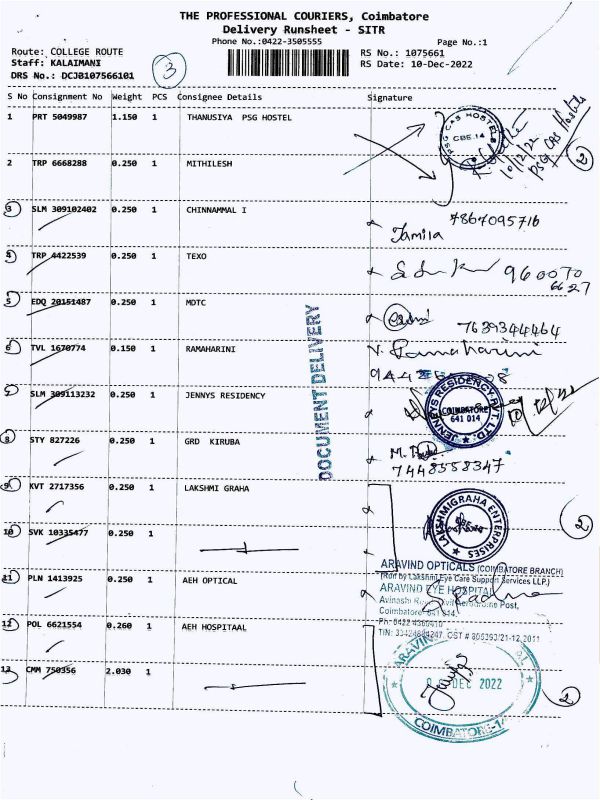 THE PROFESSIONAL COURIERS, Coimbatore
Delivery Runsheet - SITR
Phone No.:0422-3505555
Page No.:1
Route: COLLEGE ROUTE
RS No.: 1075661
Staff: KALAIMANI
RS Date: 10-Dec-2022
DRS No.: DCJB107566101
3
S No Consignment No Weight PCS Consignee Details Signature
1 PRT 5049987 1.150 1 THANUSIYA PSG HOSTEL
PSG CAS HOSTELS
CBE-14
10/12/22
PSG CAS Hostels
2
2 TRP 6668288 0.250 1 MITHILESH
3 SLM 309102402 0.250 1 CHINNAMMAL I
7867095716
Jamila
4 TRP 4422539 0.250 1 TEXO
960070
6627
5 EDQ 20151487 0.250 1 MDTC
7639344464
6 TVL 1670774 0.150 1 RAMAHARINI
V. Ramaharini
DOCUMENT DELIVERY
7 SLM 309113232 0.250 1 JENNYS RESIDENCY
JENNYS RESIDENCY PVT. LTD.
COIMBATORE
641 014
8 STY 827226 0.250 1 GRD KIRUBA
7448558347
9 KVT 2717356 0.250 1 LAKSHMI GRAHA
LAKSHMIGRAHA ENTERPRISES
2
10 SVK 10335477 0.250 1
11 PLN 1413925 0.250 1 AEH OPTICAL
ARAVIND OPTICALS (COIMBATORE BRANCH)
(Run by Lakshmi Eye Care Support Services LLP.)
ARAVIND EYE HOSPITAL
Avinashi Post,
Coimbatore-641 014.
Ph: 0422 4360410
12 POL 6621554 0.260 1 AEH HOSPITAAL
13 CMM 750356 2.030 1
ARAVIND
DEC 2022
COIMBATORE-14
2